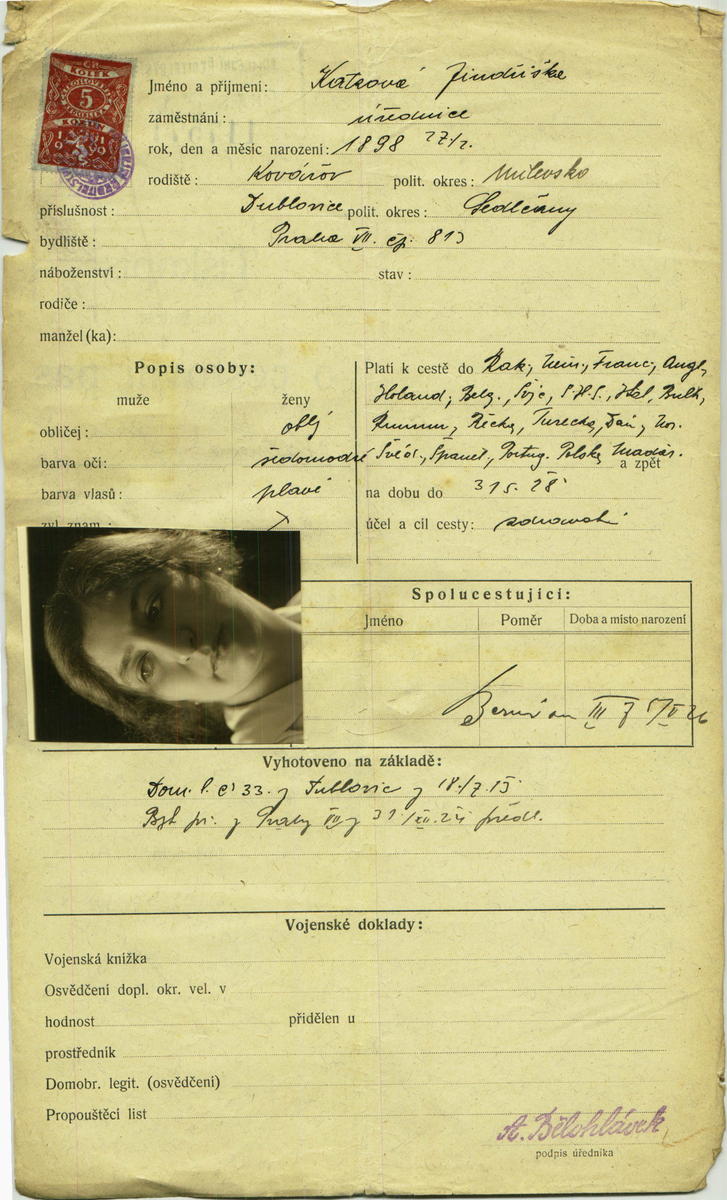 KOLEK
5
KORUN
Jméno a příjmení: Katzová Jindřiška
zaměstnání: úřednice
rok, den a měsíc narození: 1898 27/2.
rodiště: Kovářov polit. okres: Milevsko
příslušnost: Dublovice polit. okres: Sedlčany
bydliště: Praha VII. čp. 813
náboženství: stav:
rodiče:
manžel (ka):
Popis osoby:
muže ženy
obličej: oblý
barva očí: šedomodré
barva vlasů: plavé
zvl. znam.:
Platí k cestě do Rak., Něm., Franc., Angl.,
Holand., Belg., Švýc., S.H.S., Ital., Bulh.,
Rumun., Řecka, Turecka, Dán., Nor.
Švéd., Španěl., Portug. Polska, Maďar. a zpět
na dobu do 31 5. 28
účel a cíl cesty:
Spolucestující:
Jméno Poměr Doba a místo narození
III 5/V 26
Vyhotoveno na základě:
Dom. l. č 33. z Dublovic z 18./7. 15.
Byt. př. z Prahy VII z 31/XII. 24 předl.
Vojenské doklady:
Vojenská knížka
Osvědčení dopl. okr. vel. v
hodnost přidělen u
prostředník
Domobr. legit. (osvědčení)
Propouštěcí list
A. Bělohlávek
podpis úředníka